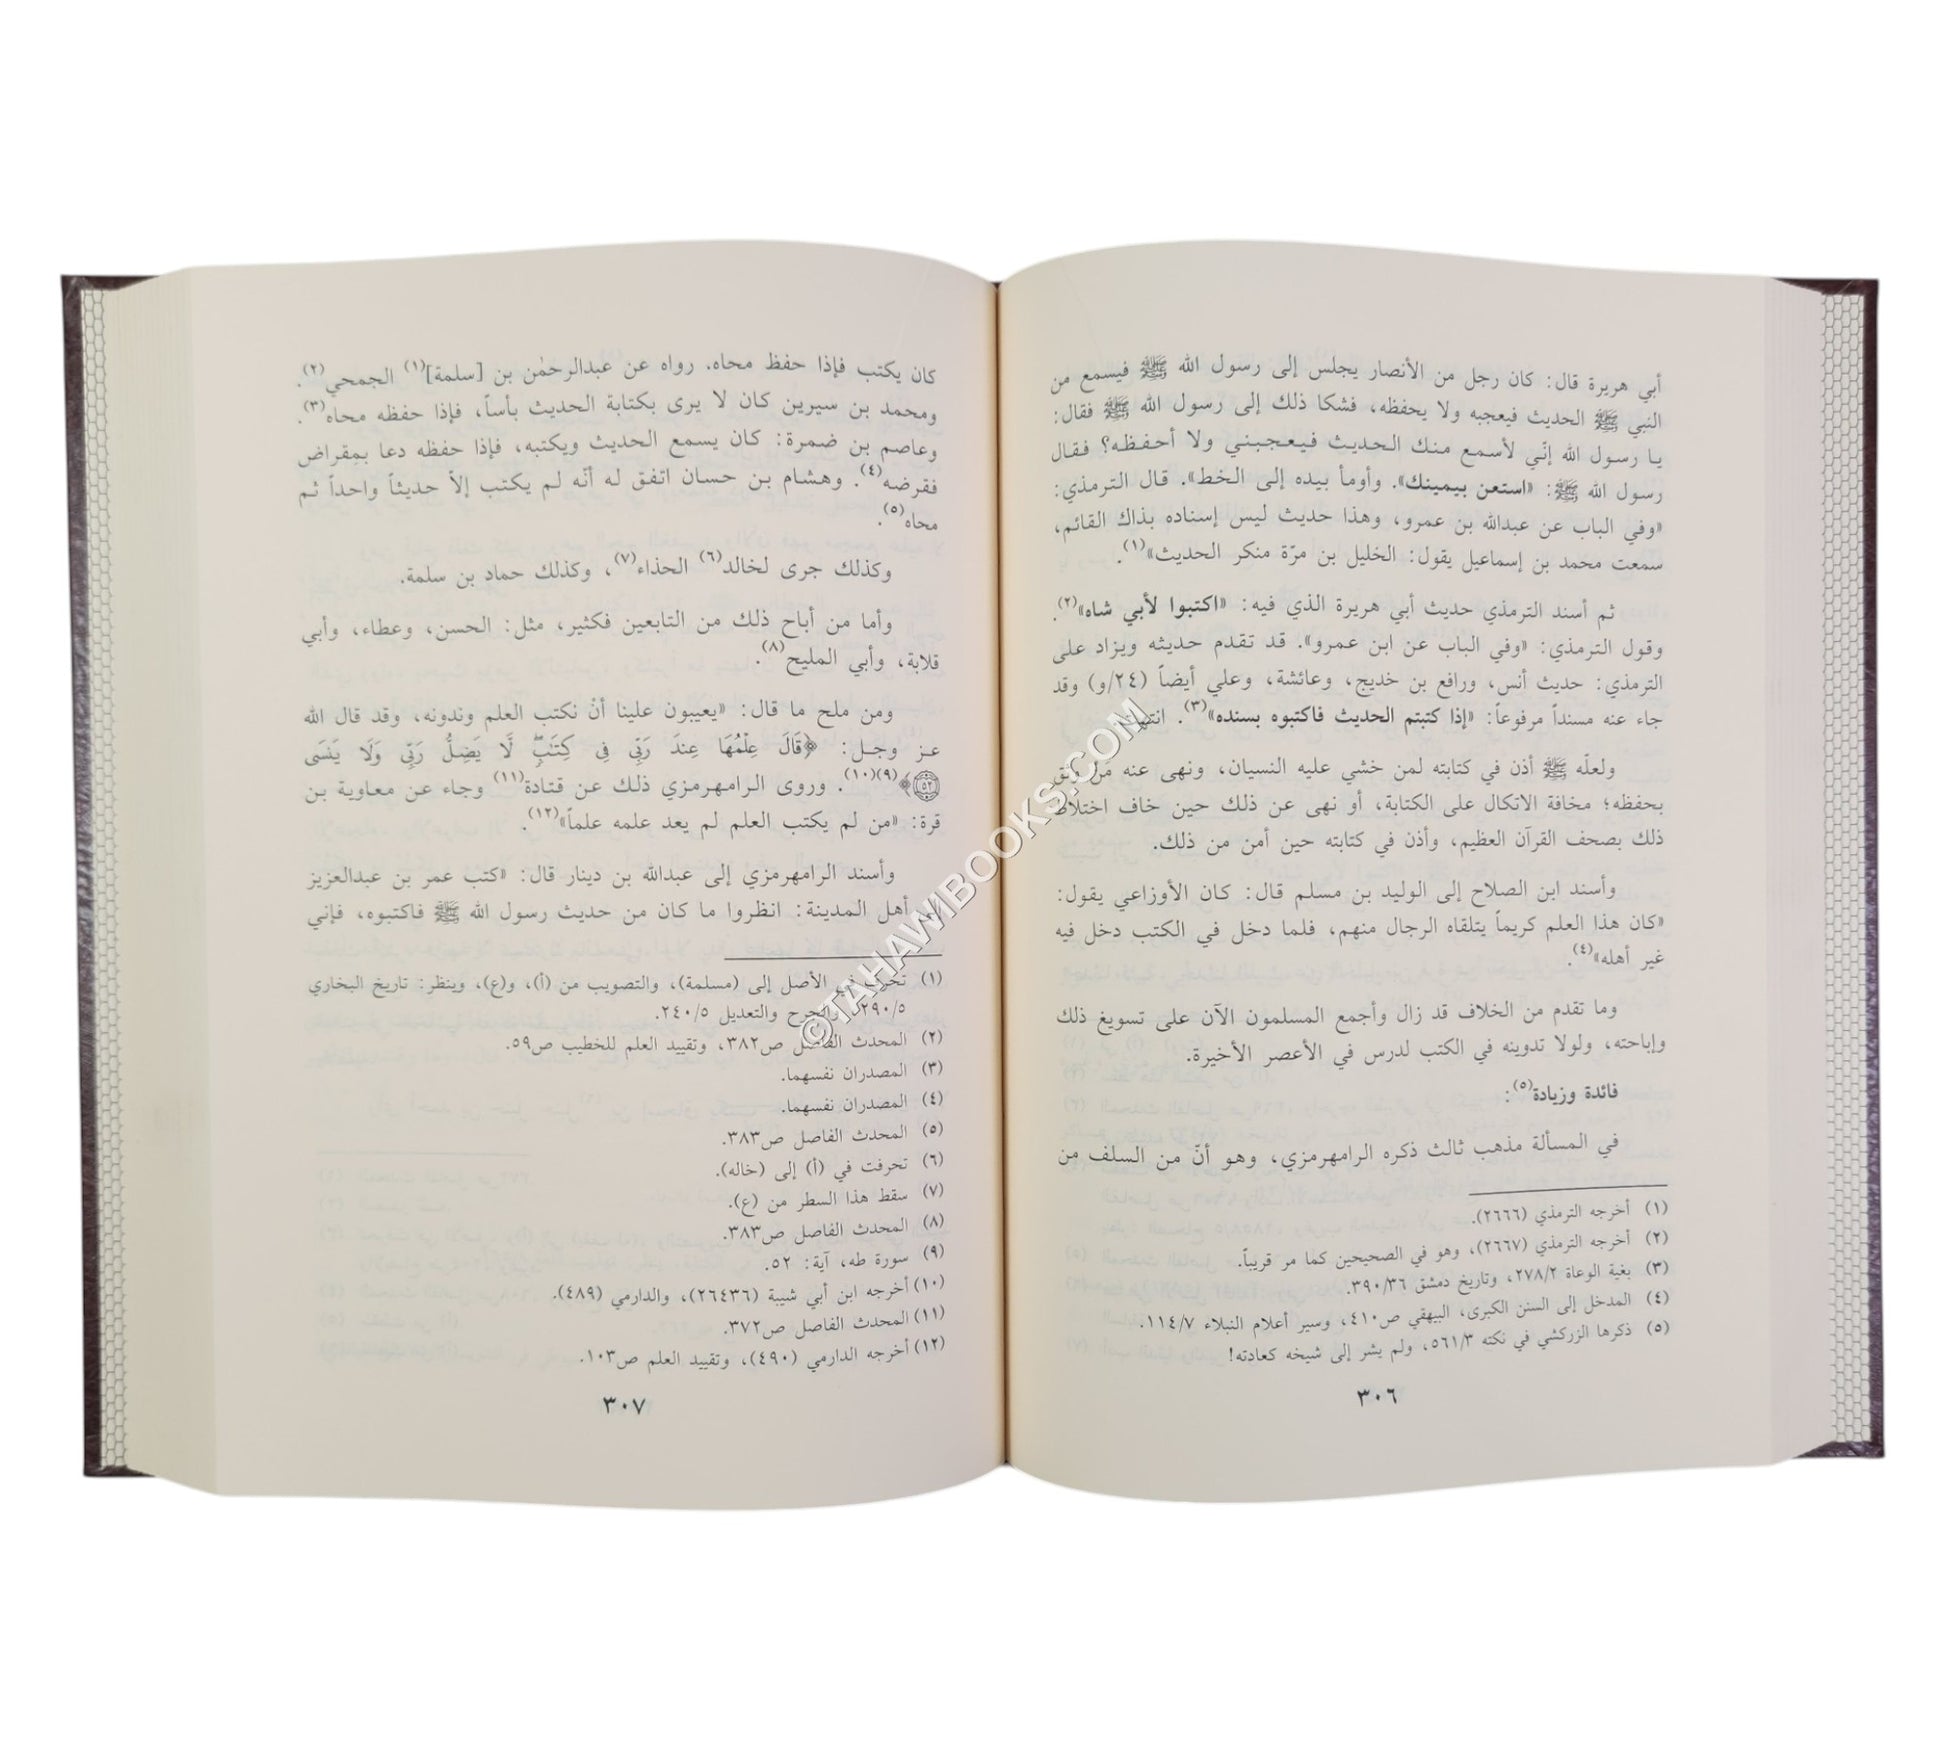 أبي هريرة قال: كان رجل من الأنصار يجلس إلى رسول الله ﷺ فيسمع من
النبي ﷺ الحديث فيعجبه ولا يحفظه، فشكا ذلك إلى رسول الله ﷺ فقال:
يا رسول الله إنّي لأسمع منك الحديث فيعجبني ولا أحفظه؟ فقال
رسول الله ﷺ: «استعن بيمينك». وأومأ بيده إلى الخط». قال الترمذي:
«وفي الباب عن عبدالله بن عمرو، وهذا حديث ليس إسناده بذاك القائم،
سمعت محمد بن إسماعيل يقول: الخليل بن مرّة منكر الحديث»(١).
ثم أسند الترمذي حديث أبي هريرة الذي فيه: «اكتبوا لأبي شاه»(٢).
وقول الترمذي: «وفي الباب عن ابن عمرو». قد تقدم حديثه ويزاد على
الترمذي: حديث أنس، ورافع بن خديج، وعائشة، وعلي أيضاً (٢٤/و) وقد
جاء عنه مسنداً مرفوعاً: «إذا كتبتم الحديث فاكتبوه بسنده»(٣). انتهى.
ولعلّه ﷺ أذن في كتابته لمن خشي عليه النسيان، ونهى عنه من وثق
بحفظه؛ مخافة الاتكال على الكتابة، أو نهى عن ذلك حين خاف اختلاط
ذلك بصحف القرآن العظيم، وأذن في كتابته حين أمن من ذلك.
وأسند ابن الصلاح إلى الوليد بن مسلم قال: كان الأوزاعي يقول:
«كان هذا العلم كريماً يتلقاه الرجال منهم، فلما دخل في الكتب دخل فيه
غير أهله»(٤).
وما تقدم من الخلاف قد زال وأجمع المسلمون الآن على تسويغ ذلك
وإباحته، ولولا تدوينه في الكتب لدرس في الأعصر الأخيرة.
فائدة وزيادة(٥):
في المسألة مذهب ثالث ذكره الرامهرمزي، وهو أنّ من السلف من
(١) أخرجه الترمذي (٢٦٦٦).
(٢) أخرجه الترمذي (٢٦٦٧)، وهو في الصحيحين كما مر قريباً.
(٣) بغية الوعاة ٢٧٨/٢، وتاريخ دمشق ٣٩٠/٣٦.
(٤) المدخل إلى السنن الكبرى، البيهقي ص٤١٠، وسير أعلام النبلاء ١١٤/٧.
(٥) ذكرها الزركشي في نكته ٥٦١/٣، ولم يشر إلى شيخه كعادته!
٣٠٦
كان يكتب فإذا حفظ محاه. رواه عن عبدالرحمٰن بن [سلمة](١) الجمحي(٢).
ومحمد بن سيرين كان لا يرى بكتابة الحديث بأساً، فإذا حفظه محاه(٣).
وعاصم بن ضمرة: كان يسمع الحديث ويكتبه، فإذا حفظه دعا بمِقراض
فقرضه(٤). وهشام بن حسان اتفق له أنّه لم يكتب إلاّ حديثاً واحداً ثم
محاه(٥).
وكذلك جرى لخالد(٦) الحذاء(٧)، وكذلك حماد بن سلمة.
وأما من أباح ذلك من التابعين فكثير، مثل: الحسن، وعطاء، وأبي
قلابة، وأبي المليح(٨).
ومن ملح ما قال: «يعيبون علينا أنْ نكتب العلم وندونه، وقد قال الله
عز وجل: ﴿قَالَ عِلْمُهَا عِندَ رَبِّي فِي كِتَٰبٍۖ لَّا يَضِلُّ رَبِّي وَلَا يَنسَى
(٥٢)﴾(٩)(١٠). وروى الرامهرمزي ذلك عن قتادة(١١) وجاء عن معاوية بن
قرة: «من لم يكتب العلم لم يعد علمه علماً»(١٢).
وأسند الرامهرمزي إلى عبدالله بن دينار قال: «كتب عمر بن عبدالعزيز
إلى أهل المدينة: انظروا ما كان من حديث رسول الله ﷺ فاكتبوه، فإني
(١) تحرف في الأصل إلى (مسلمة)، والتصويب من (أ)، و(ع)، وينظر: تاريخ البخاري
٢٩٠/٥، والجرح والتعديل ٢٤٠/٥.
(٢) المحدث الفاصل ص٣٨٢، وتقييد العلم للخطيب ص٥٩.
(٣) المصدران نفسهما.
(٤) المصدران نفسهما.
(٥) المحدث الفاصل ص٣٨٣.
(٦) تحرفت في (أ) إلى (خاله).
(٧) سقط هذا السطر من (ع).
(٨) المحدث الفاصل ص٣٨٣.
(٩) سورة طه، آية: ٥٢.
(١٠) أخرجه ابن أبي شيبة (٢٦٤٣٦)، والدارمي (٤٨٩).
(١١) المحدث الفاصل ص٣٧٢.
(١٢) أخرجه الدارمي (٤٩٠)، وتقييد العلم ص١٠٣.
٣٠٧
©TAHAWIBOOKS.COM